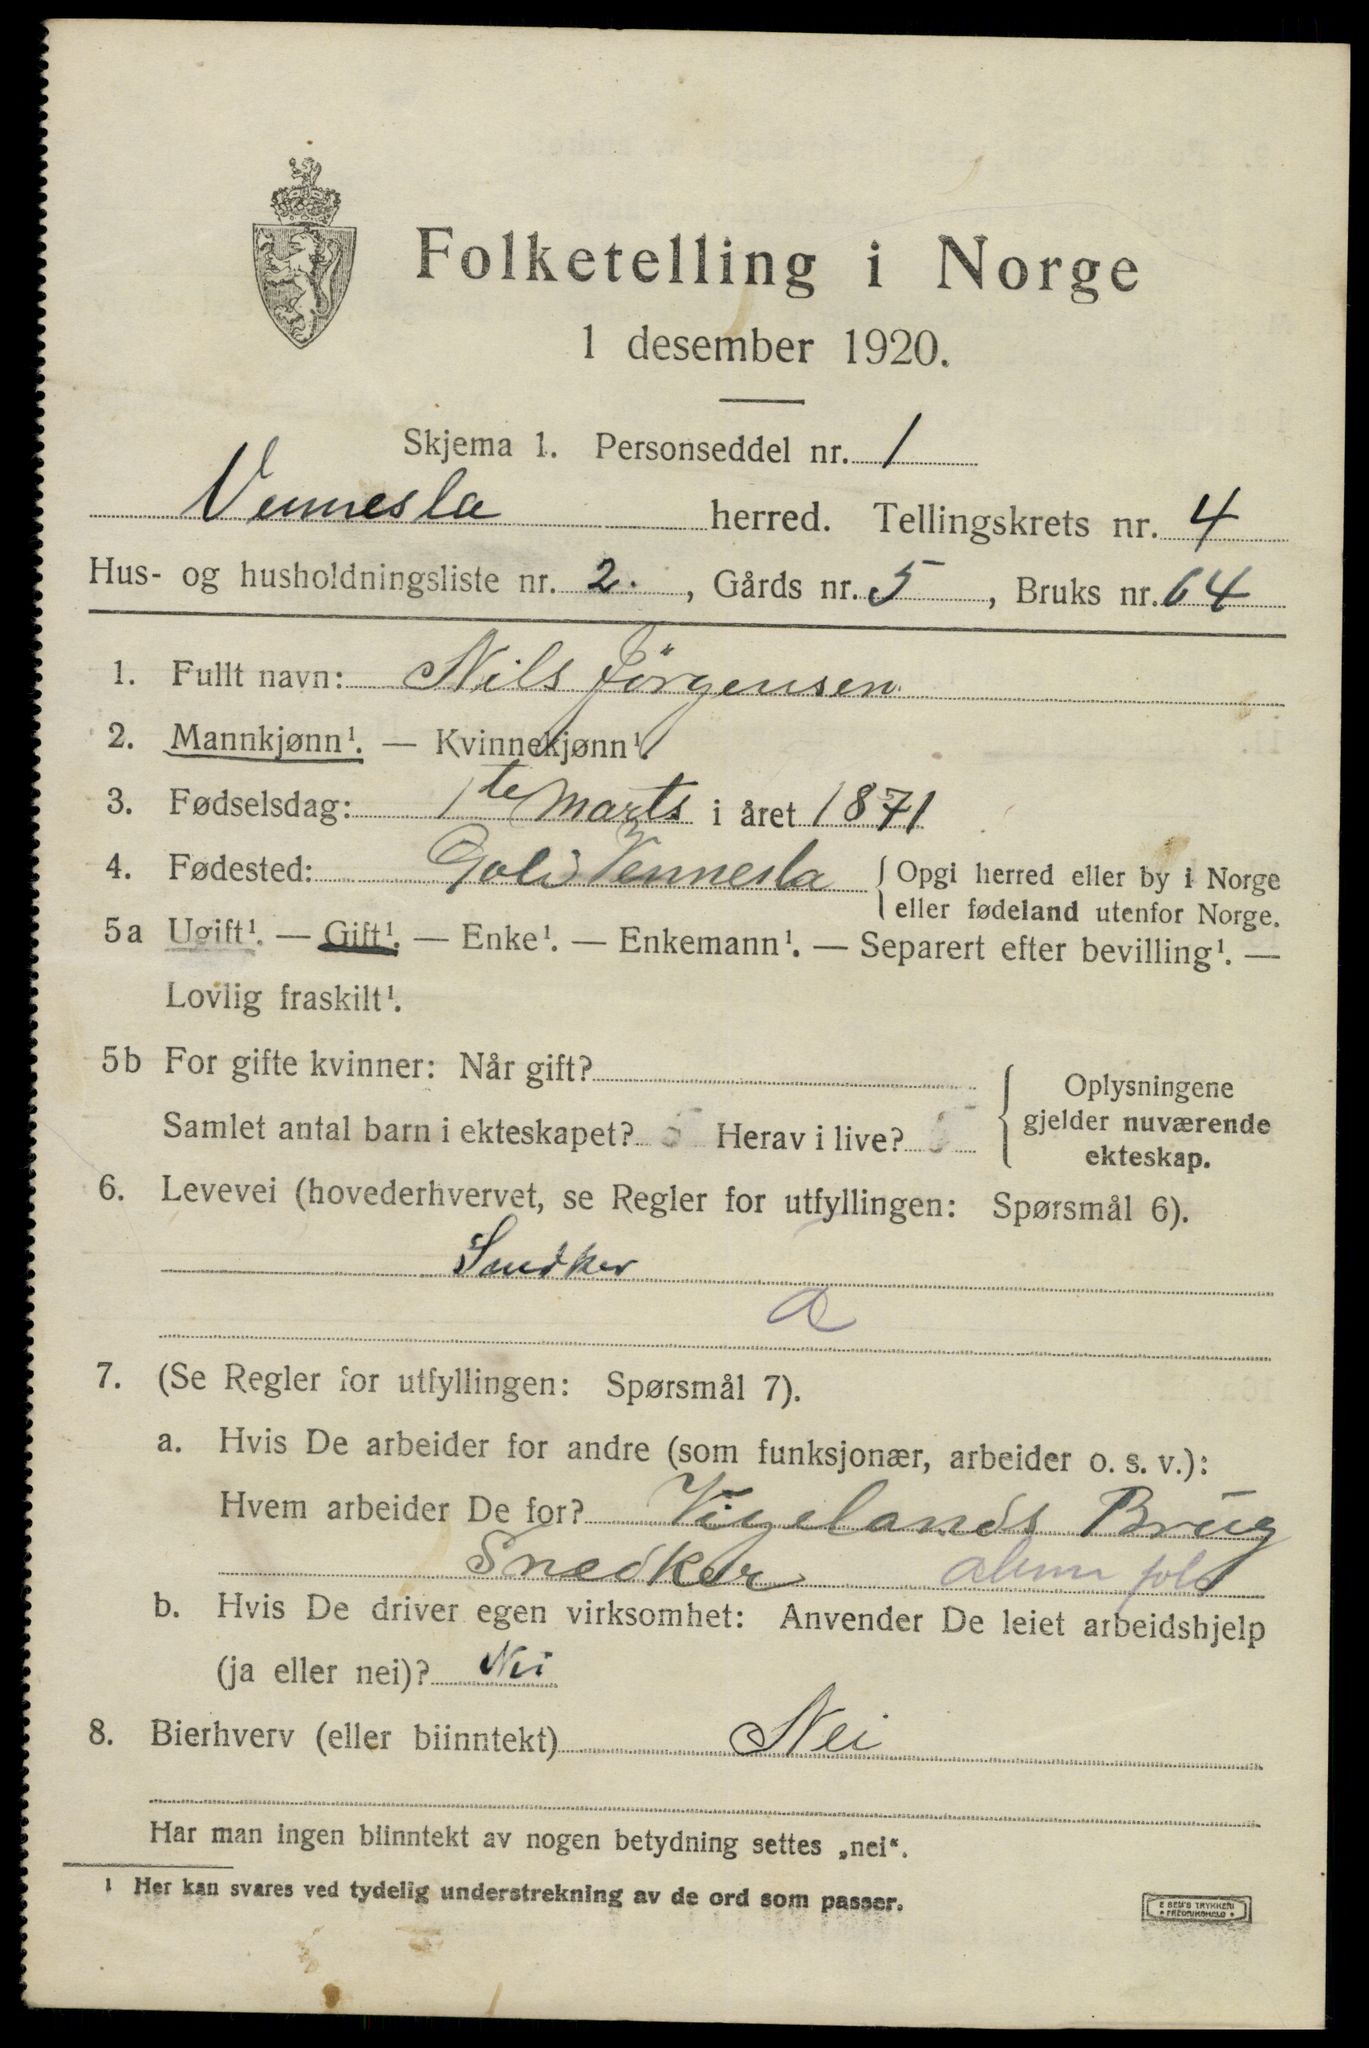 Folketelling i Norge
1 desember 1920.
Skjema 1. Personseddel nr. 1
Vennesla herred. Tellingskrets nr. 4
Hus- og husholdningsliste nr. 2. , Gårds nr. 5 , Bruks nr. 64
1. Fullt navn: Nils Jörgensen.
2. Mannkjønn¹. — Kvinnekjønn¹.
3. Fødselsdag: 1te Marts i året 1871
4. Fødested: Vennesla { Opgi herred eller by i Norge
eller fødeland utenfor Norge.
5a Ugift¹. — Gift¹. — Enke¹. — Enkemann¹. — Separert efter bevilling¹. —
Lovlig fraskilt¹.
5b For gifte kvinner: Når gift?
Samlet antal barn i ekteskapet? 5 Herav i live? 5
Oplysningene
gjelder nuværende
ekteskap.
6. Levevei (hovederhvervet, se Regler for utfyllingen: Spørsmål 6).
Snedker
a
7. (Se Regler for utfyllingen: Spørsmål 7).
a. Hvis De arbeider for andre (som funksjonær, arbeider o. s. v.):
Hvem arbeider De for? Vigelands Brug
Snedker
b. Hvis De driver egen virksomhet: Anvender De leiet arbeidshjelp
(ja eller nei)? Nei
8. Bierhverv (eller biinntekt) Nei
Har man ingen biinntekt av nogen betydning settes „nei“.
1 Her kan svares ved tydelig understrekning av de ord som passer.
E SEM'S TRYKKERI
• FREDRIKSHALD •